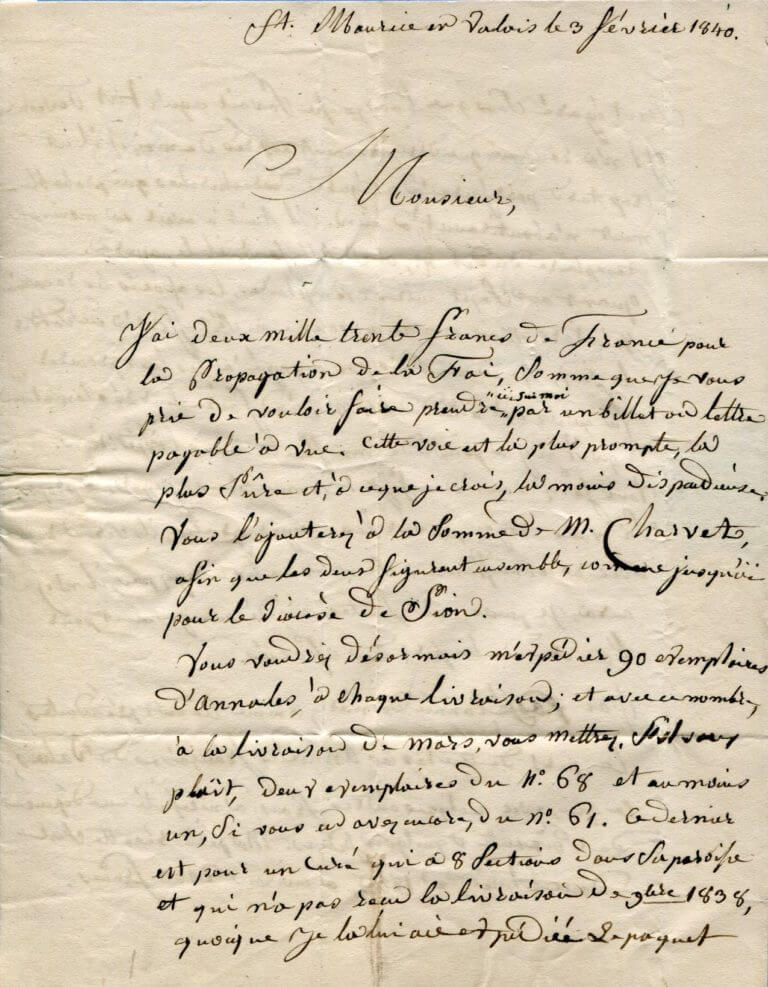 St. Maurice en Valais le 3 février 1840.
Monsieur,
J'ai deux mille trente francs de France pour
la Propagation de la Foi, Somme que je vous
prie de vouloir faire prendre "ici sur moi" par un billet ou lettre
payable à vue. Cette voie est la plus prompte, la
plus Sûre et, à ce que je crois, la moins dispendieuse.
Vous l'ajouterez à la Somme de M. Charvet,
afin que les deux figurent ensemble, comme jusqu'ici
pour le diocèse de Sion.
Vous voudrez désormais m'expédier 90 exemplaires
d'Annales, à chaque livraison; et avec ce nombre,
à la livraison de mars, vous mettrez, S'il vous
plaît, deux exemplaires du No. 68 et au moins
un, Si vous en avez encore, du No. 61. Ce dernier
est pour un Curé qui a 8 Sections dans Sa paroisse
et qui n'a pas reçu la livraison de 9bre 1838,
quoique je la lui aie expédiée Le paquet